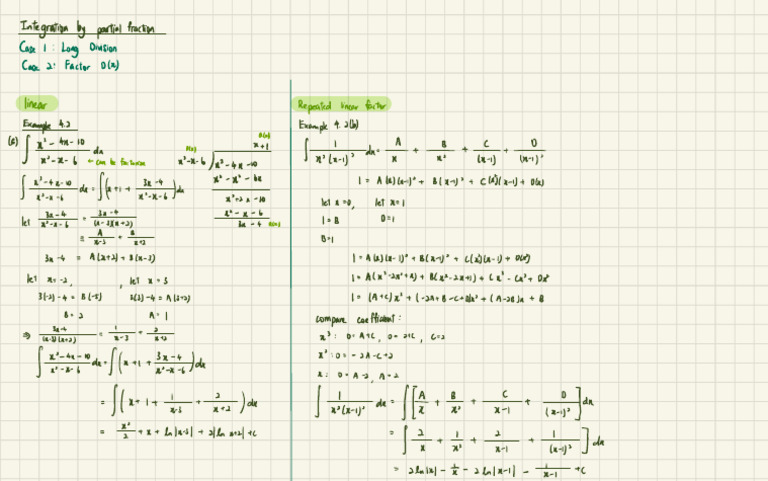 Integration by partial fraction
Case 1 : Long Division
Case 2: Factor D(x)
linear
Example 4.2
(a) ∫ (x³ - 4x - 10)/(x² - x - 6) dx ← can be factorise
∫ (x³ - 4x - 10)/(x² - x - 6) dx = ∫ (x + 1 + (3x - 4)/(x² - x - 6)) dx
let (3x - 4)/(x² - x - 6) = (3x - 4)/((x - 3)(x + 2))
≡ A/(x - 3) + B/(x + 2)
3x - 4 = A(x+2) + B(x-3)
let x = -2, , let x = 3
3(-2) - 4 = B(-5) 3(3) - 4 = A(3+2)
B = 2 A = 1
⇒ (3x - 4)/((x-3)(x+2)) = 1/(x - 3) + 2/(x + 2)
∫ (x³ - 4x - 10)/(x² - x - 6) dx = ∫ (x + 1 + (3x - 4)/(x² - x - 6)) dx
= ∫ (x + 1 + 1/(x - 3) + 2/(x + 2)) dx
= x²/2 + x + ln|x-3| + 2|ln x+2| + C
x + 1
x² - x - 6 x³ - 4x - 10
x³ - x² - 6x
x² + 2x - 10
x² - x - 6
3x - 4
Repeated linear factor
Example 4.2(b)
∫ 1/(x²(x-1)²) dx = A/x + B/x² + C/(x-1) + D/(x-1)²
1 = A(x)(x-1)² + B(x-1)² + C(x²)(x-1) + D(x)
let x = 0, let x = 1
1 = B D = 1
B = 1
1 = A(x)(x-1)² + B(x-1)² + C(x²)(x-1) + D(x²)
1 = A(x³ - 2x² + x) + B(x² - 2x + 1) + Cx³ - Cx² + Dx²
1 = (A+C)x³ + (-2A + B - C + D)x² + (A - 2B)x + B
compare coefficient :
x³ : 0 = A+C, 0 = 2+C , C = 2
x² : 0 = - 2A - C + 2
x : 0 = A - 2, A = 2
∫ 1/(x²(x-1)²) dx = ∫ [A/x + B/x² + C/(x-1) + D/(x-1)²] dx
= ∫ [2/x + 1/x² + 2/(x-1) + 1/(x-1)²] dx
= 2 ln|x| - 1/x - 2 ln|x-1| - 1/(x-1) + C